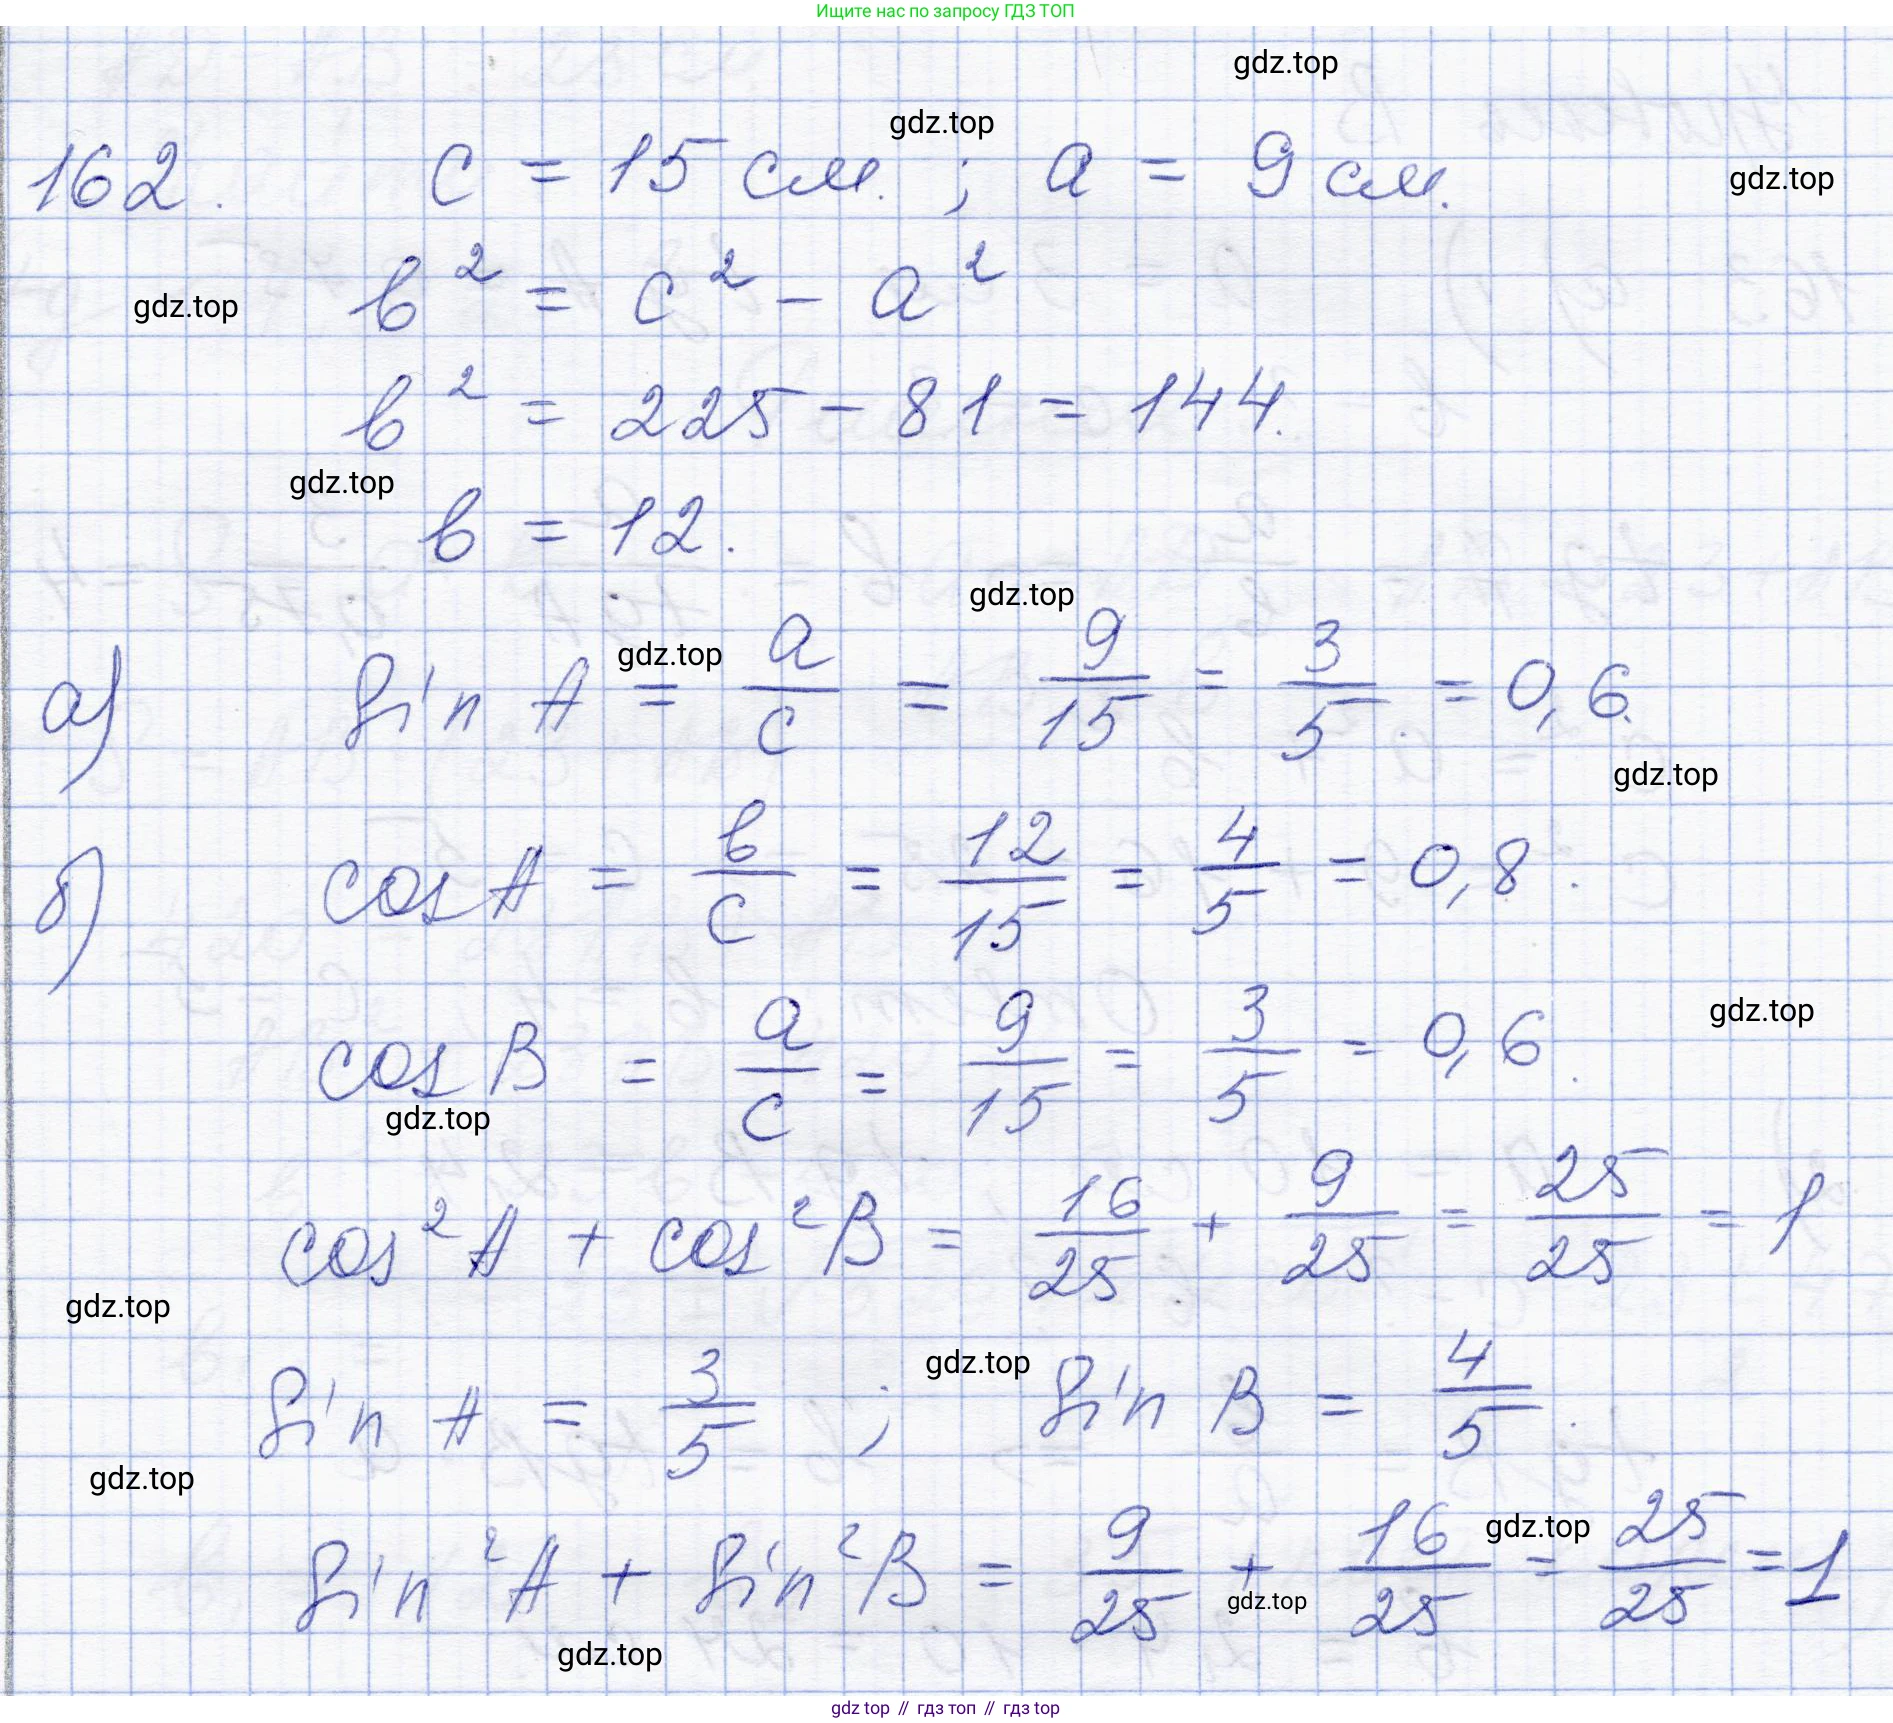 Ищите нас по запросу ГДЗ ТОП
gdz.top
gdz.top
162. c = 15 см. ; a = 9 см.
gdz.top
b² = c² − a²
gdz.top
b² = 225 − 81 = 144.
gdz.top
b = 12.
gdz.top
gdz.top
а) sin A = a/c = 9/15 = 3/5 = 0,6.
gdz.top
б) cos A = b/c = 12/15 = 4/5 = 0,8.
gdz.top
cos B = a/c = 9/15 = 3/5 = 0,6.
gdz.top
cos²A + cos²B = 16/25 + 9/25 = 25/25 = 1
gdz.top
gdz.top
sin A = 3/5 ; sin B = 4/5.
gdz.top
gdz.top
sin²A + sin²B = 9/25 + 16/25 = 25/25 = 1
gdz.top
gdz.top
gdz top // гдз топ // гдз top